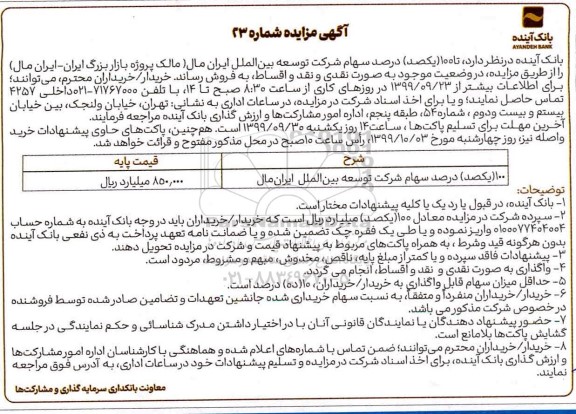 آگهی مزایده شماره ۲۳
بانک آینده
AYANDEH BANK
بانک آینده در نظر دارد، تا۱۰۰(یکصد) درصد سهام شرکت توسعه بین‌الملل ایران مال( مالک پروژه بازار بزرگ ایران-ایران مال)
را از طریق مزایده، در وضعیت موجود به صورت نقدی و نقد و اقساط، به فروش رساند. خریدار/خریداران محترم، می‌توانند؛
برای اطلاعات بیشتر از ۱۳۹۹/۰۹/۲۳ در روزهای کاری از ساعت ۸:۳۰ صبح تا ۱۴، با تلفن ۷۱۶۷۰۰۰-۰۲۱داخلی ۴۲۵۷
تماس حاصل نمایند؛ و یا برای اخذ اسناد شرکت در مزایده، در ساعات اداری به نشانی: تهران، خیابان ولنجک، بین خیابان
بیستم و بیست ودوم ، شماره۵۴، طبقه پنجم، اداره امور مشارکت‌ها و ارزش گذاری بانک آینده مراجعه فرمایند.
آخرین مهلت برای تسلیم پاکت‌ها ، ساعت۱۴ روز یکشنبه ۱۳۹۹/۰۹/۳۰ است. هم‌چنین، پاکت‌های حاوی پیشنهادات خرید
واصله نیز، روز چهارشنبه مورخ ۱۳۹۹/۱۰/۰۳، رأس ساعت ۱۰صبح در محل مذکور مفتوح و قرائت خواهد شد.
شرح قیمت پایه
۱۰۰(یکصد) درصد سهام شرکت توسعه بین‌الملل ایران‌مال ۸۵۰,۰۰۰ میلیارد ریال
توضیحات:
۱- بانک آینده، در قبول یا رد یک یا کلیه پیشنهادات مختار است.
۲- سپرده شرکت در مزایده معادل ۱۰۰(یکصد) میلیارد ریال است که خریدار/خریداران باید در وجه بانک آینده به شماره حساب
۰۱۰۰۰۷۷۴۰۴۰۰۴ واریز نموده و یا طی یک فقره چک تضمین شده و یا ضمانت نامه تعهد پرداخت به ذی نفعی بانک آینده
بدون هرگونه قید وشرط ، به همراه پاکت‌های مربوط به پیشنهاد قیمت و شرکت در مزایده تحویل دهند.
۳- پیشنهادات فاقد سپرده و یا کمتر از مبلغ پایه، ناقص، مخدوش، مبهم و مشروط، مردود است.
۴- واگذاری به صورت نقدی و نقد و اقساط، انجام می گردد.
۵- حداقل میزان سهام قابل واگذاری به خریدار/خریداران، ۱۰(ده) درصد است.
۶- خریدار/خریداران منفرداً و متفقاً، به نسبت سهام خریداری شده جانشین تعهدات و تضامین صادر شده توسط فروشنده
در خصوص شرکت مذکور می باشد.
۷- حضور پیشنهاد دهندگان یا نمایندگان قانونی آنان با در اختیار داشتن مدرک شناسائی و حکم نمایندگی در جلسه
گشایش پاکت‌ها بلامانع است.
۸- خریدار/خریداران محترم می‌توانند؛ ضمن تماس با شماره‌های اعلام شده و هماهنگی با کارشناسان اداره امور مشارکت‌ها
و ارزش گذاری بانک آینده، برای اخذ اسناد شرکت در مزایده و تسلیم پیشنهادات خود در ساعات اداری، به آدرس فوق مراجعه
نمایند.
معاونت بانکداری سرمایه گذاری و مشارکت‌ها